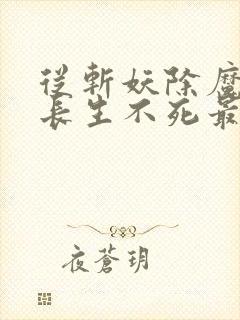 從斬妖除魔
長生不死最
夜蒼玥